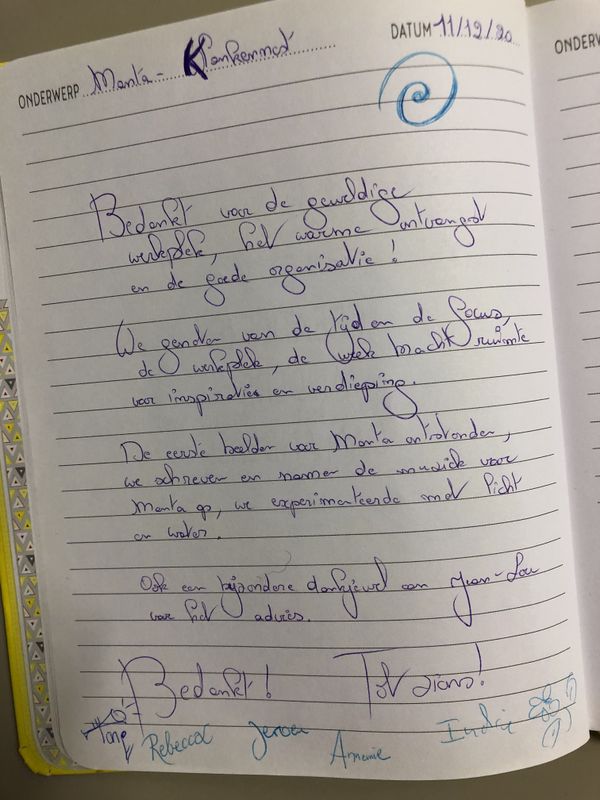 ONDERWERP Manta - Klankennest
DATUM 11/12/20
ONDERW
Bedankt voor de geweldige
werkplek, het warme ontvangst
en de goede organisatie!
We genoten van de tijd en de focus,
de werkplek, de week bracht ruimte
voor inspiratie en verdieping.
De eerste beelden voor Manta ontstonden,
we schreven en namen de muziek voor
Manta op, we experimenteerde met licht
en water.
Ook een bijzondere dankjewel aan Jean-Lou
voor het advies.
Bedankt! Tot ziens!
Rebecca Jeroen Annemie